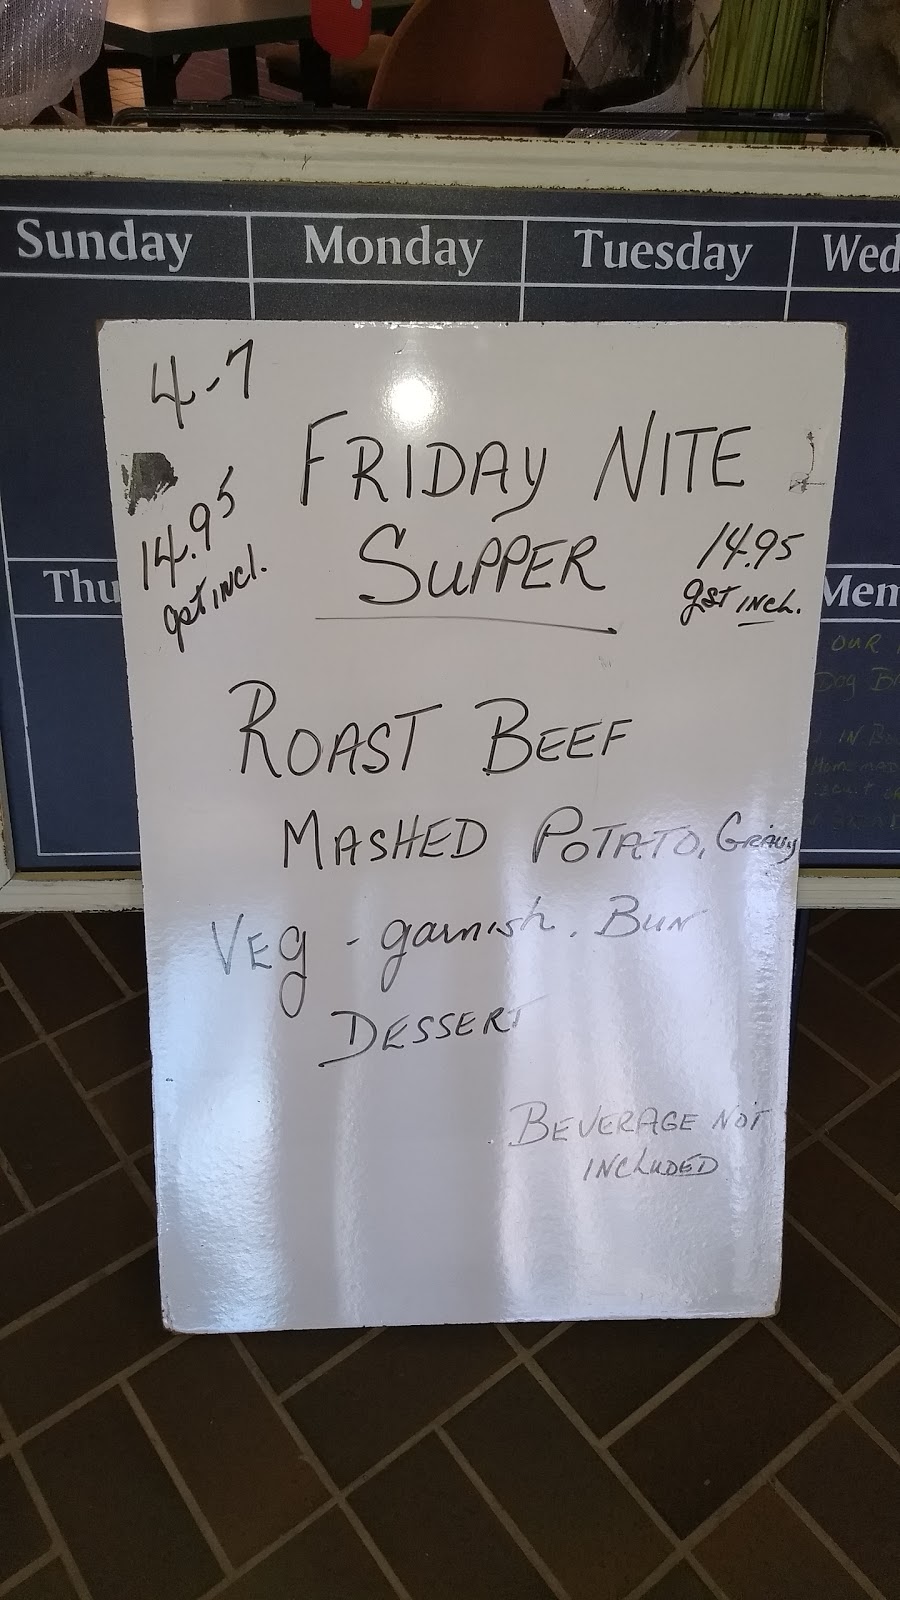 Sunday Monday Tuesday Wed
4-7
FRIDAY NITE
SUPPER
14.95
gst incl.
14.95
gst incl.
Thu
Mem
ROAST BEEF
MASHED POTATO, Gravy
VEG - garnish. BUN
DESSERT
BEVERAGE NOT
INCLUDED
OUR
Dog
IN